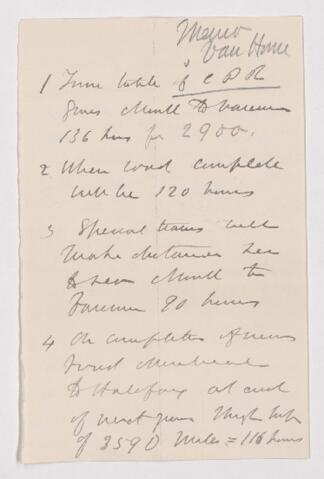 Memo
Van Horne
1 Time table of C P R
Gives Montl to Vancouver
136 hours for 2900.
2 When road complete
will be 120 hours
3 Special trains will
make distance
Montl to
Vancouver 90 hours
4 On completion
road Montreal
to Halifax at end
of next year through
of 3590 miles = 116 hours